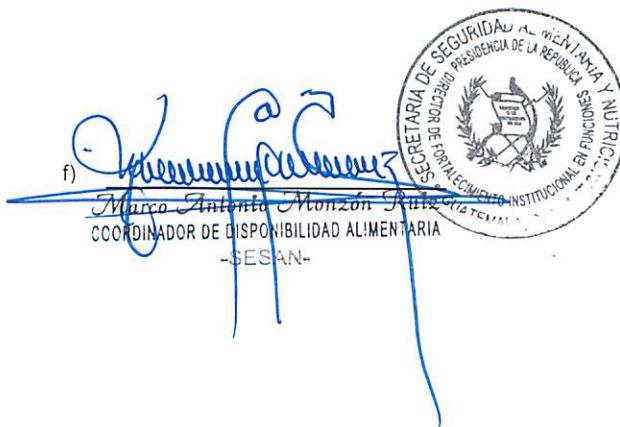 f)
Marco Antonio Monzón Ruiz
COORDINADOR DE DISPONIBILIDAD ALIMENTARIA
-SESAN-
SECRETARIA DE SEGURIDAD ALIMENTARIA Y NUTRICI
PRESIDENCIA DE LA REPUBLICA
DIRECTOR DE FORTALECIMIENTO INSTITUCIONAL EN FUNCIONES
GUATEMALA